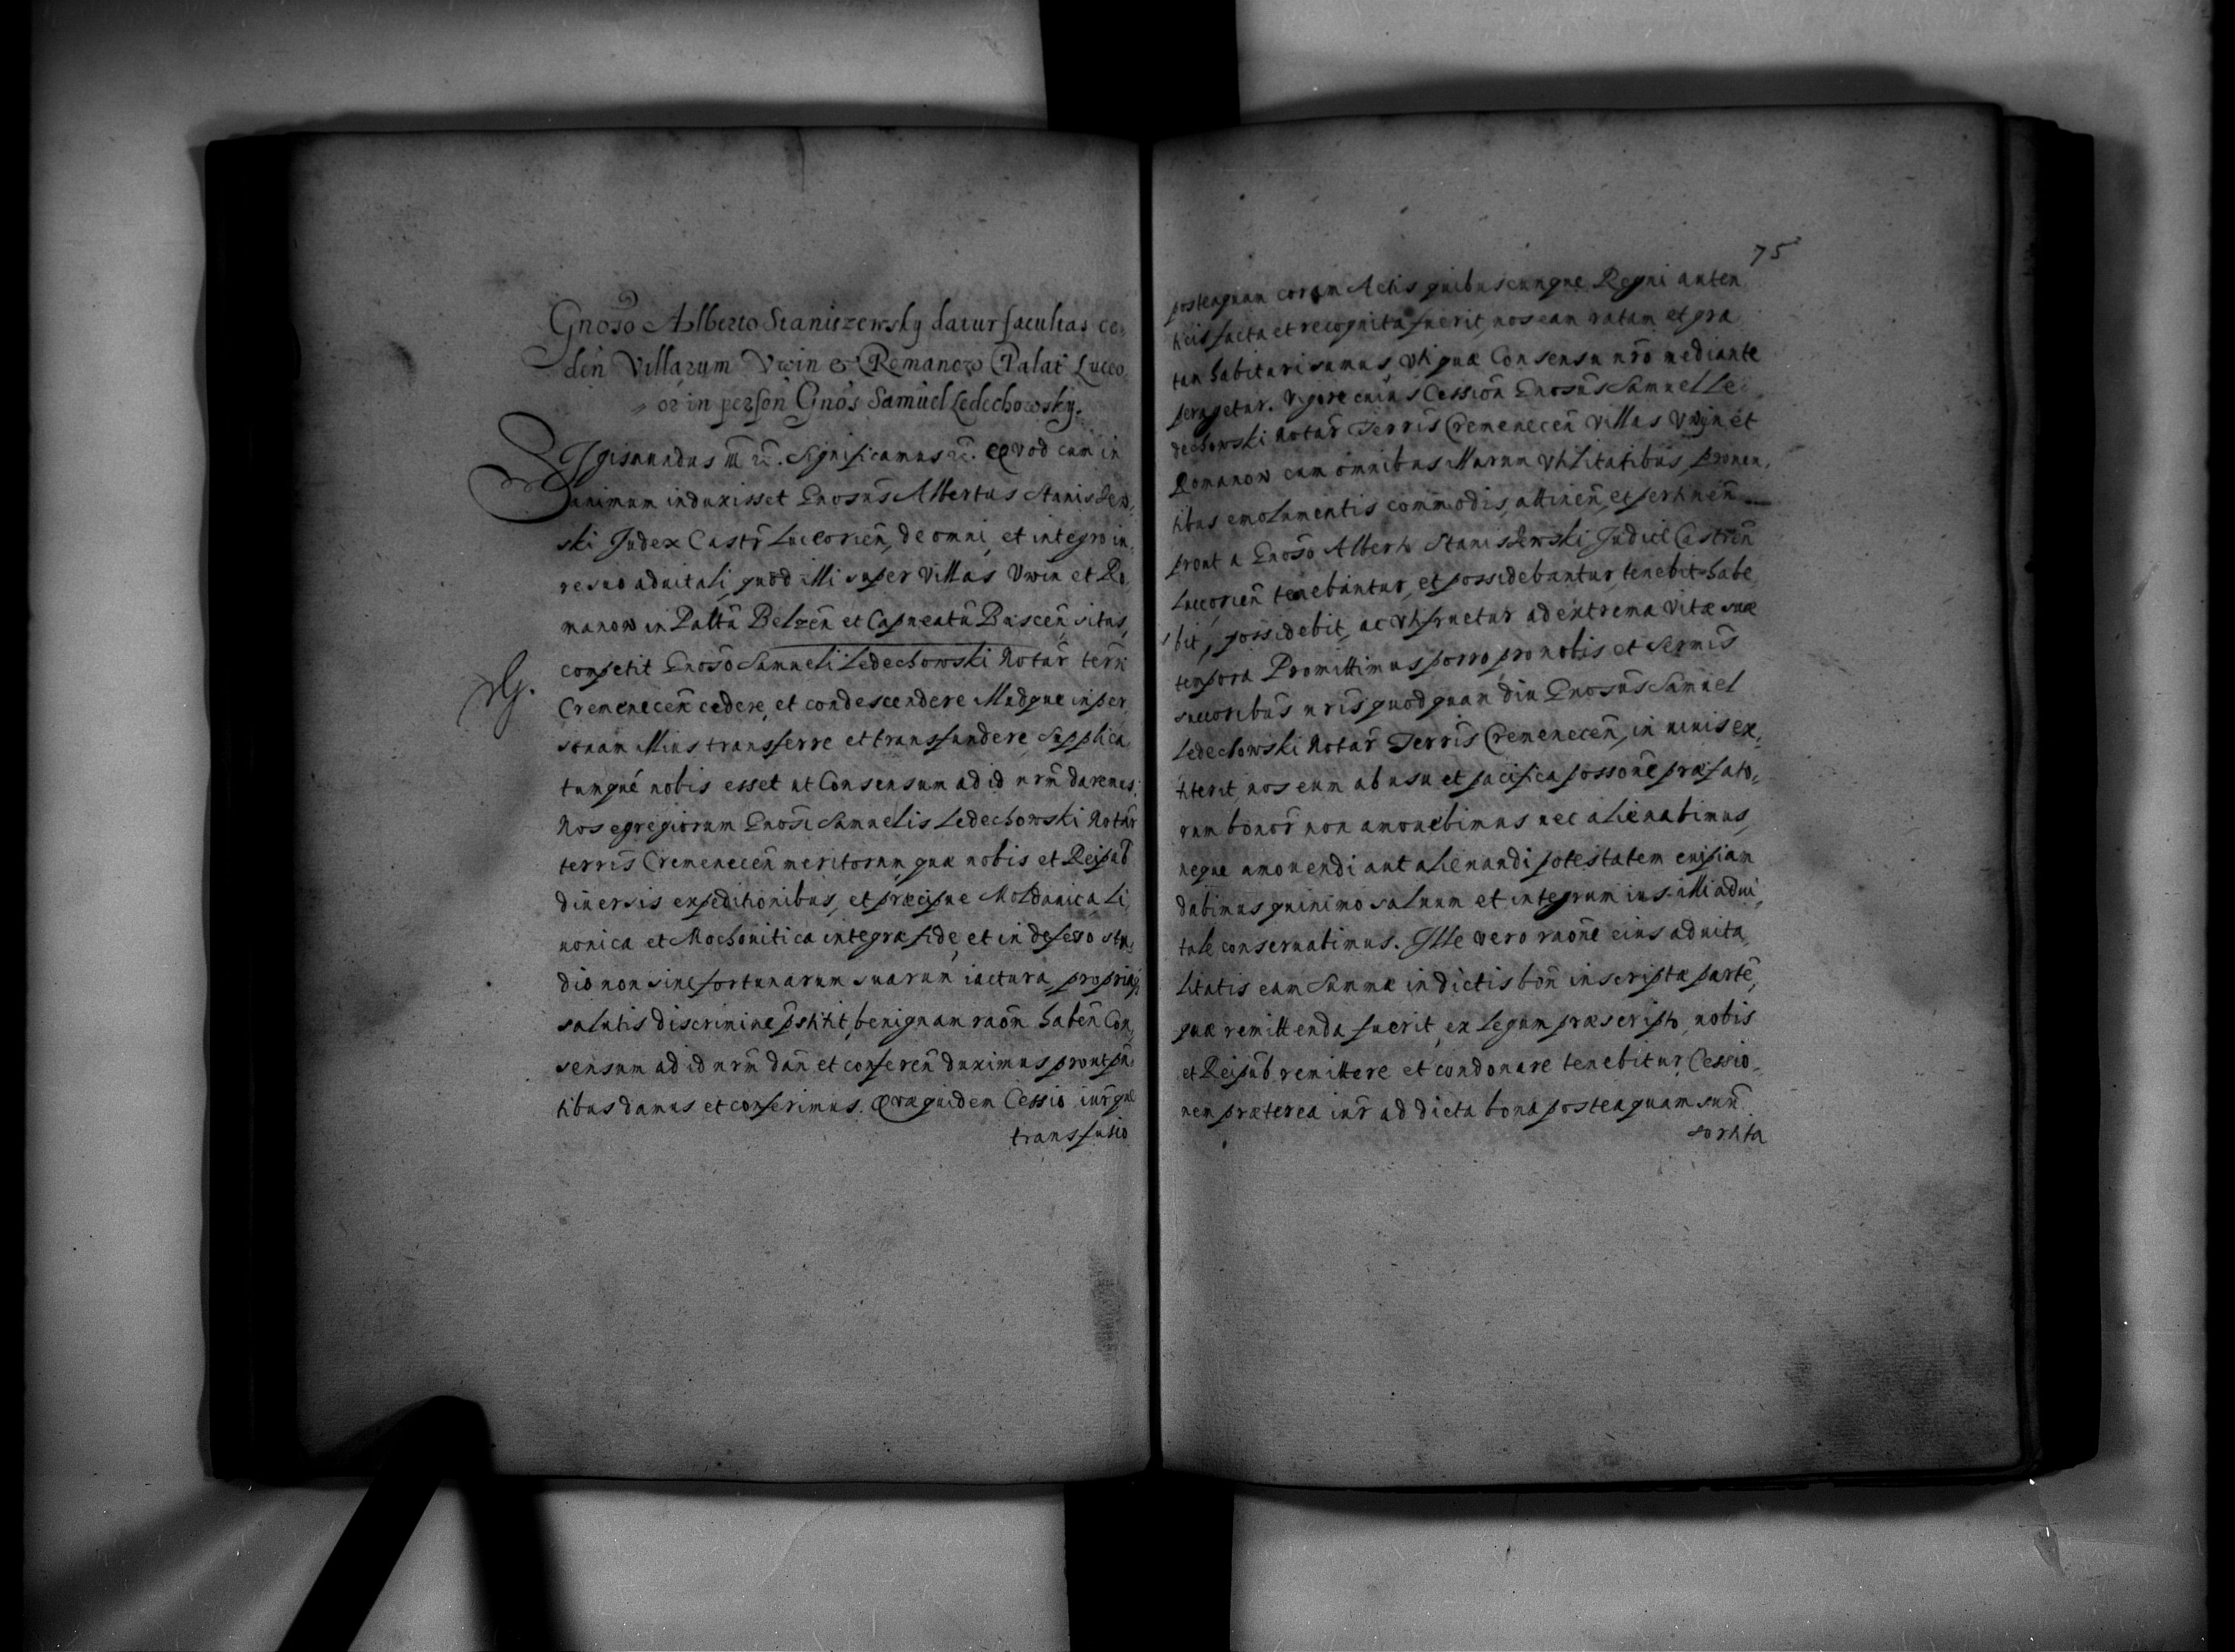 Gnoso Alberto Staniszewsky datur facultas ce
den Villarum Vwin & Romanow Palat Luceo
or in person Gnos Samuel Ledechowsky.
Sigismundus III etc. Significamus etc. Quod cum in
animum induxisset Gnosus Albertus Stanisdew
ski Judex Castr Luceorien, de omni, et integro iu
re suo aduitali, quod illi super Villas Vwin et Ro
manow in Palttu Belzen et Capneatu Buscen, sitas,
competit Gnoso Samueli Ledechowski Notar terri
Cremenecen cedere, et condescendere Illudque in per
sonam illius transferre et transfundere Supplica
tumque nobis esset ut Consensum ad id nrm daremus.
Nos egregiorum Gnosi Samuelis Ledechowski Notar
terris Cremenecen meritorum, quæ nobis et Reipub
diuersis expeditionibus, et præcipue Moldauica Li
uonica et Moschouitica integra fide, et indefesso stu
dio non sine fortunarum suarum iactura, propriæq
salutis discrimine pstitit, benignam raon haben Con
sensum ad id nrm dan et conferen duximus prout pn
tibus damus et conferimus. Quæ quidem Cessio iurque
transfusio
75
posteaquam coram Actis quibuscunque Regni auten
ticis facta et recognita fuerit, nos eam ratam et gra
tam habituri sumus, vti quæ Consensu nro mediante
peragetur. Vigore cuius Cession Gnosus Samuel Le
dechowski Notar Terris Cremenecen Villas Vwin et
Romanow cum omnibus illarum vtilitatibus prouen
tibus emolumentis commodis, attinen, et pertinen
prout a Gnoso Alberto Stanisdewski Judice Castren
Luceorien tenebantur, et possidebantur, tenebit habe
bit, possidebit, ac vtifruetur ad extrema vitæ suæ
tempora Promittimus porro pro nobis et Sermis
succoribus nris quod quam diu Gnosus Samuel
Ledechowski Notar Terris Cremenecen, in viuis ex
titerit, nos eum ab usu et pacifica possone præfato
rum bonor non amouebimus nec alienabimus,
neque amouendi aut alienandi potestatem cuipiam
dabimus quinimo saluum et integrum ius illi adui
tale conseruabimus. Ille vero raone eius aduita
litatis eam Summæ in dictis bon inscriptæ parte,
quæ remittenda fuerit, ex legum præscripto, nobis
et Reipub remittere et condonare tenebitur, Cessio
nem præterea iur ad dicta bona posteaquam suum
sortita